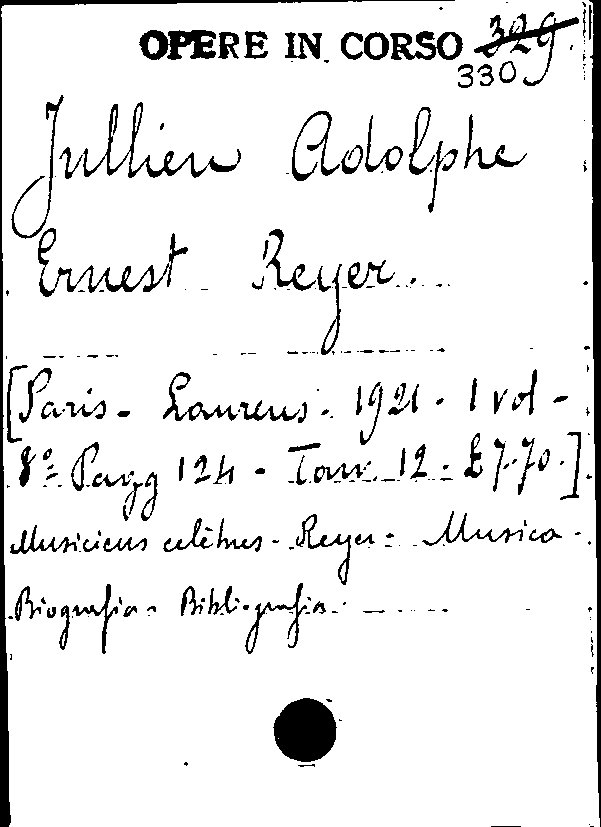 OPERE IN CORSO 329.
330
Jullien Adolphe
Ernest Reyer.
[Paris - Laurens - 1921 - 1 vol -
8º Pagg 124 - Tav. 12 - £ 7.70.]
Musiciens celèbres - Reyer - Musica -
Biografia - Bibliografia